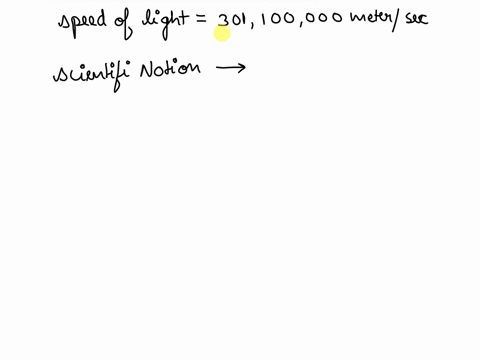 speed of light = 301,100,000 meter/sec
scientifi Notion →